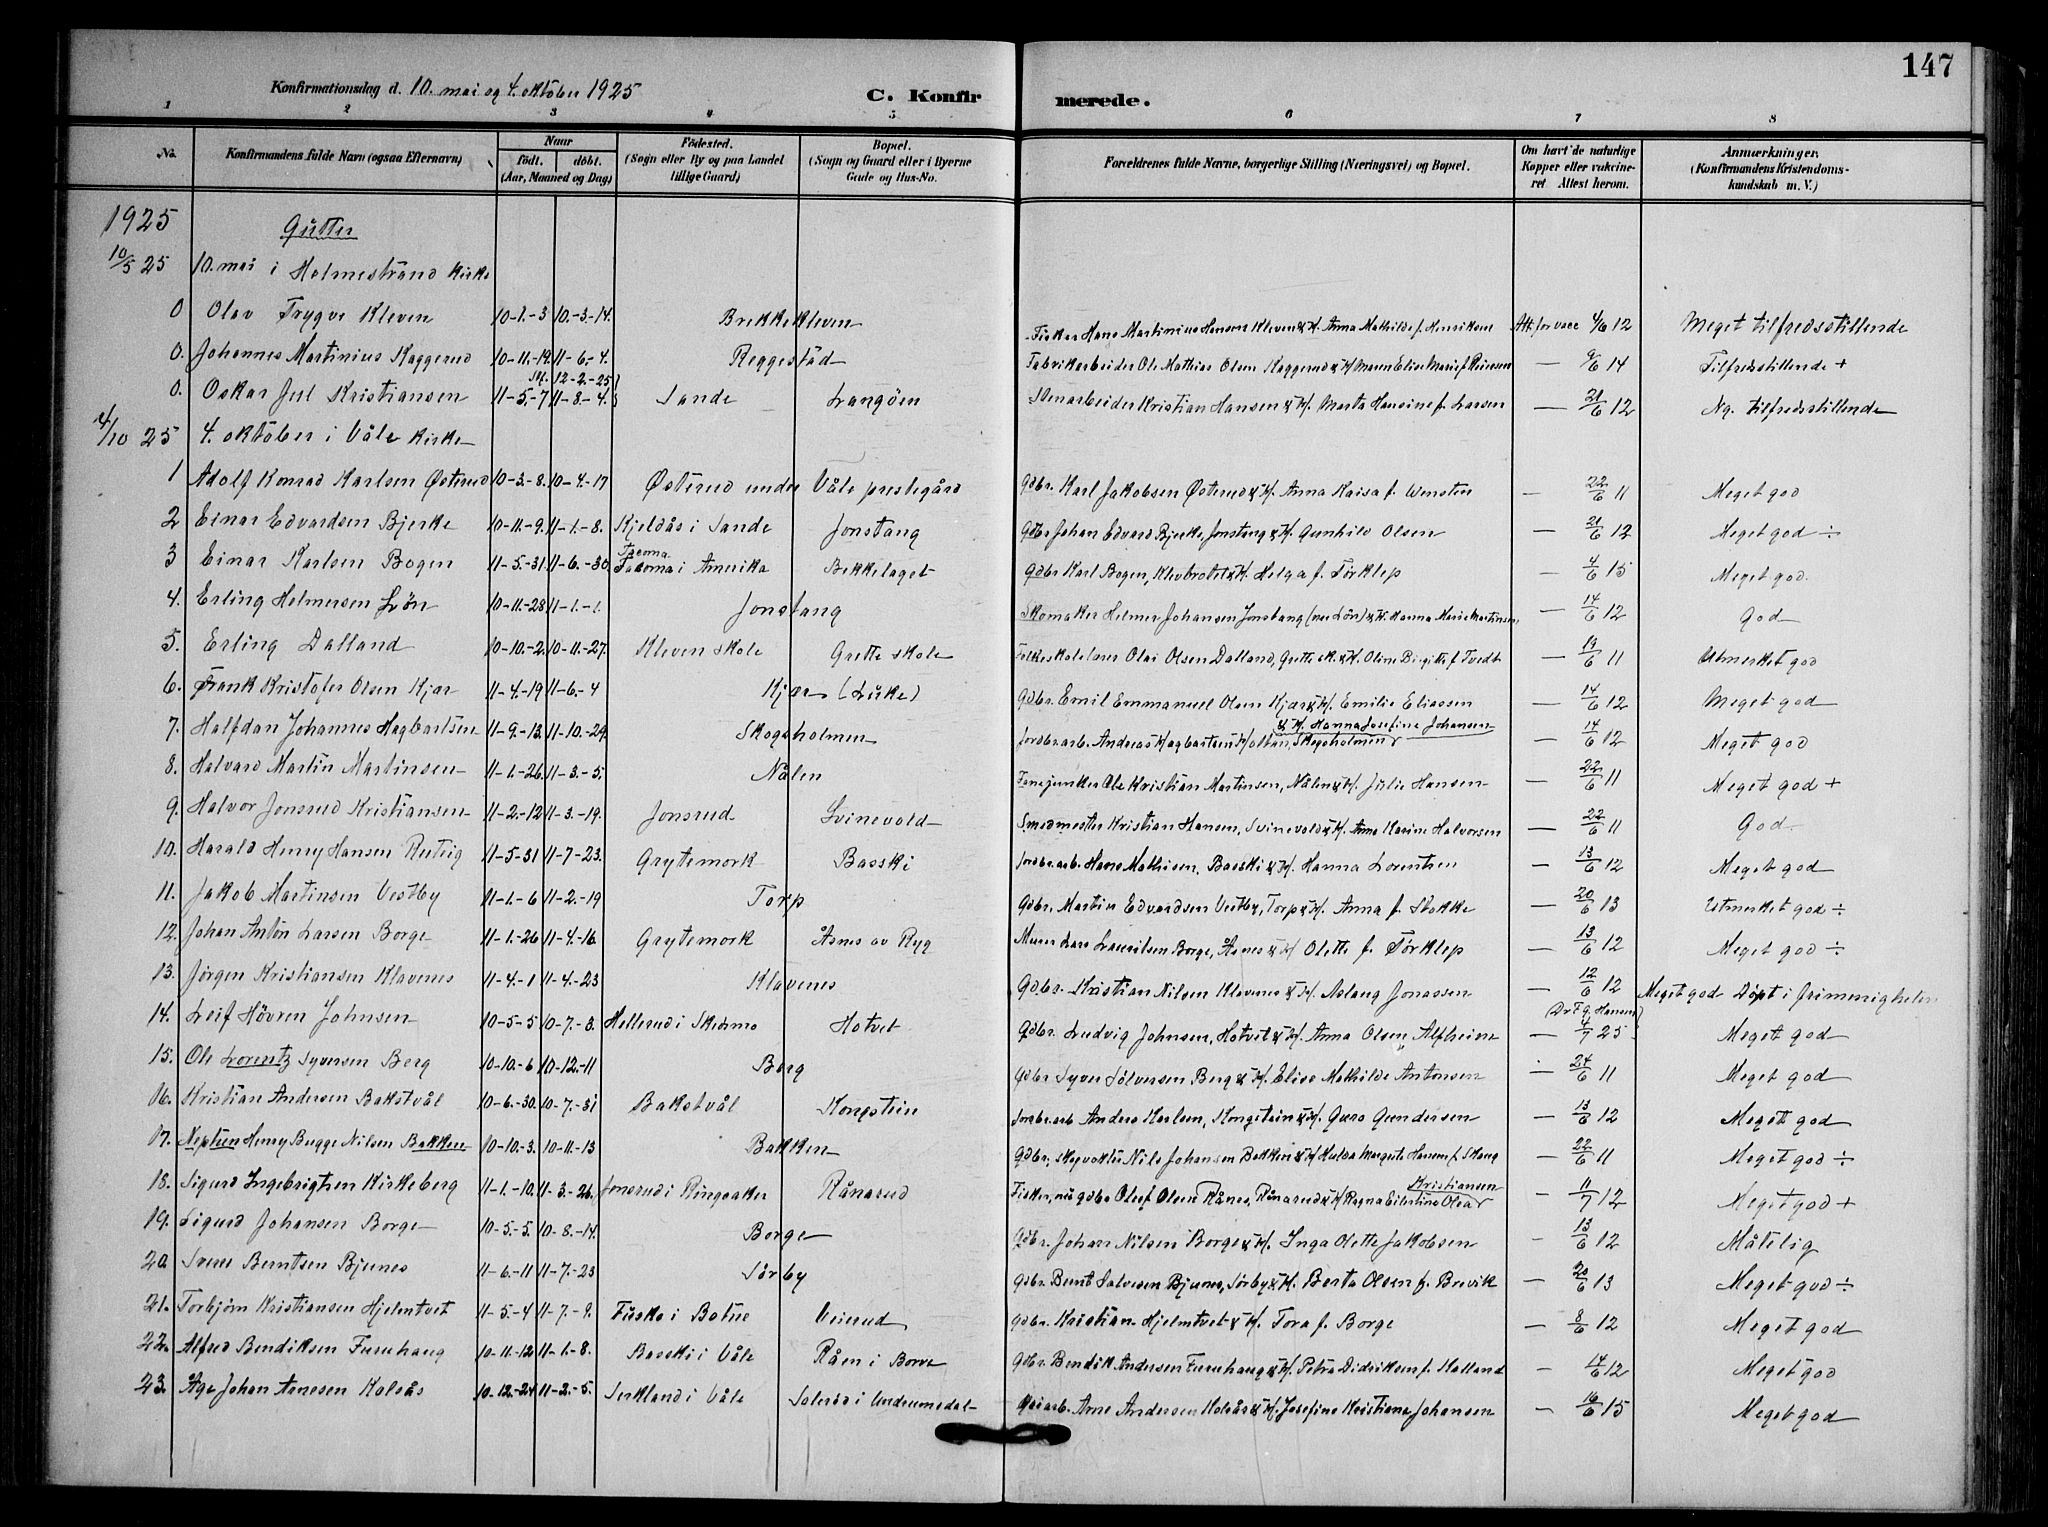 147
Konfirmationsdag d. 10. mai og 4. oktober 1925
C. Konfirmerede.
1 2 3 4 5 6 7 8
No. Konfirmandens fulde Navn (ogsaa Efternavn) Naar födt. döbt. (Aar, Maaned og Dag) Födested. (Sogn eller By og paa Landet tillige Gaard) Bopæl. (Sogn og Gaard eller i Byerne Gade og Hus-No. Forældrenes fulde Navne, borgerlige Stilling (Næringsvei) og Bopæl. Om havt de naturlige Kopper eller vakcineret Attest herom. Anmærkninger. (Konfirmandens Kristendomskundskab m. V.)
1925 Gutter
10/5 25 10. mai i Holmestrand kirke
0 Olav Trygve Kleven 10-1-3 10-3-14. Brekkekleven Fisker Hans Martinius Hansen Kleven & H. Anna Mathilde f. Henriksen Att. for vacc 4/6 12 Meget tilfredsstillende
0. Johannes Martinius Kaggerud 10-11-19. 11-6-4. Reggestad Fabrikarbeider Ole Mathias Olsen Kaggerud & H. Maren Elise Marie f. — 9/6 14 Tilfredsstillende +
0. Oskar Juel Kristiansen 12-2-25 11-5-7 11-8-4. Sande Langöen Stenarbeider Kristian Hansen & H. Marta Hansine f. Larsen — 21/6 12 Ng. tilfredsstillende
4/10 25 4. oktober i Våle kirke
1 Adolf Konrad Karlsen Østerud 10-3-8. 10-4-17 Østerud under Våle prestegård Gdbr. Karl Jakobsen Østerud & H. Anna Kaisa f. Wensten — 22/6 11 Meget god
2 Einar Edvardsen Bjerke 10-11-9. 11-1-8. Kjeldås i Sande Jonstang Gdbr Johan Edvard Bjerke, Jonstang & H. Gunhild Olsen — 21/6 12 Meget god ÷
3 Einar Karlsen Bogen 11-5-31. 11-6-30 Tacoma i Amerika Bekkelaget Gdbr Karl Bogen, & H. Helga f. Törklep — 4/6 15 Meget god.
4. Erling Helmersen Lön 10-11-28 11-1-1. Jonstang Skomaker Helmer Johansen Jonstang (nu Lön) & H. Hanna Marie Martinsen — 14/6 12 God
5. Erling Dalland 10-10-2. 10-11-27. Kleven skole Grette skole Folkeskolelærer Olai Olsen Dalland, Grette sk. & H. Oline Birgitte f. Tvedt — 19/6 11 Utmerket god
6. Frank Kristofer Olsen Kjær 11-4-19 11-6-4 Kjær (Luke) Gdbr. Emil Emmanuel Olsen Kjær & H. Emilie Eliassen — 14/6 12 Meget god
7. Halfdan Johannes Hagbartsen 11-9-13. 11-10-29. Skogsholmen Jordbr.arb. Andreas Hagbartsen Holtan, Skogsholmen & H. Hanna Josefine Johansen — 14/6 12 Meget god
8. Halvard Martin Martinsen 11-1-26. 11-3-5. Nålen Fanejunker Ole Kristian Martinsen, Nålen & H. Julie Hansen — 22/6 11 Meget god +
9. Halvor Jonsrud Kristiansen 11-2-12 11-3-19. Jonsrud Svinevold Smedmester Kristian Hansen, Svinevold & H. Anna Karine Halvorsen — 22/6 11 God.
10. Harald Henry Hansen Rutsig 11-5-31 11-7-23. Grytemork Basski Jordbr.arb. Hans Mathisen, Basski & H. Hanna Lorentsen — 13/6 12 Meget god
11. Jakob Martinsen Vestby 11-1-6 11-2-19 Torp Gdbr. Martin Edvardsen Vestby, Torp & H. Anna f. Stokke — 20/6 13 Utmerket god ÷
12. Johan Anton Larsen Borge 11-1-26 11-4-16. Grytemork Åsnes av Ryg Murer Lars Lauritsen Borge, Åsnes & H. Olette f. Törklep — 13/6 12 Meget god ÷
13. Jörgen Kristiansen Klavenes 11-4-1 11-4-23 Klavenes Gdbr. Kristian Nilsen Klavenes & H. Aslaug Jonassen — 12/6 12 Meget god Döpt i frimenigheten
14. Leif Hövren Johnsen 10-5-5 10-7-3. Hellerud i Skedsmo Hotvet Gdbr. Ludvig Johnsen, Hotvet & H. Anna Olsen, Alfheim (Dr F. G. Hansen) — 4/7 25 Meget god
15. Ole Lorentz Syversen Berg 10-10-6 10-12-11 Berg Gdbr Syver Sölversen Berg & H. Elise Mathilde Antonsen — 24/6 11 Meget god
16. Kristian Andersen Bakstvål 10-6-30. 10-7-31 Bakstvål Kongstein Jordbr.arb Anders Karlsen, Kongstein & H. Guro Gundersen — 13/6 12 Meget god
17. Neptun Henry Bugge Nilsen Bakken 10-10-3. 10-11-13 Bakken Gdbr, skogvokter Nils Johansen Bakken & H. Hulda Margrete Hansen f. Skaug — 22/6 11 Meget god ÷
18. Sigurd Ingebrigtsen Kirkeberg 11-1-10. 11-3-26. Jonsrud i Ringsaker Rånerud Fisker, nu gdbr Oluf Olsen Rånes, Rånerud & H. Ragna Eilertine Olea Kristiansen — 11/7 12 Meget god +
19. Sigurd Johansen Borge 10-5-5. 10-8-14. Borge Gdbr. Johan Nilsen Borge & H. Inga Olette Jakobsen — 13/6 12 Måtelig
20. Sverre Berntsen Bjunes 11-6-11 11-7-23 Sörby Gdbr. Bernt Salvesen Bjunes, Sörby & H. Berta Olsen f. Brevik — 20/6 13 Meget god ÷
21. Torbjörn Kristiansen Hjelmtvet 11-5-4 11-7-9. Fuske i Botne Veierud Gdbr. Kristian Hjelmtvet & H. Tora f. Borge — 8/6 12 Meget god
22. Alfred Bendiksen Furuhaug 10-11-12 11-1-8. Basski i Våle Råen i Borre Gdbr. Bendik Andersen Furuhaug & H. Petra Didriksen f. Holland — 14/6 12 Meget god
23. Åge Johan Arnesen Kolsås 10-12-24 11-2-5. Serkland i Våle Solerød i Undrumsdal Arne Andersen Kolsås & H. Josefine Kristiane Johansen — 16/6 15 Meget god